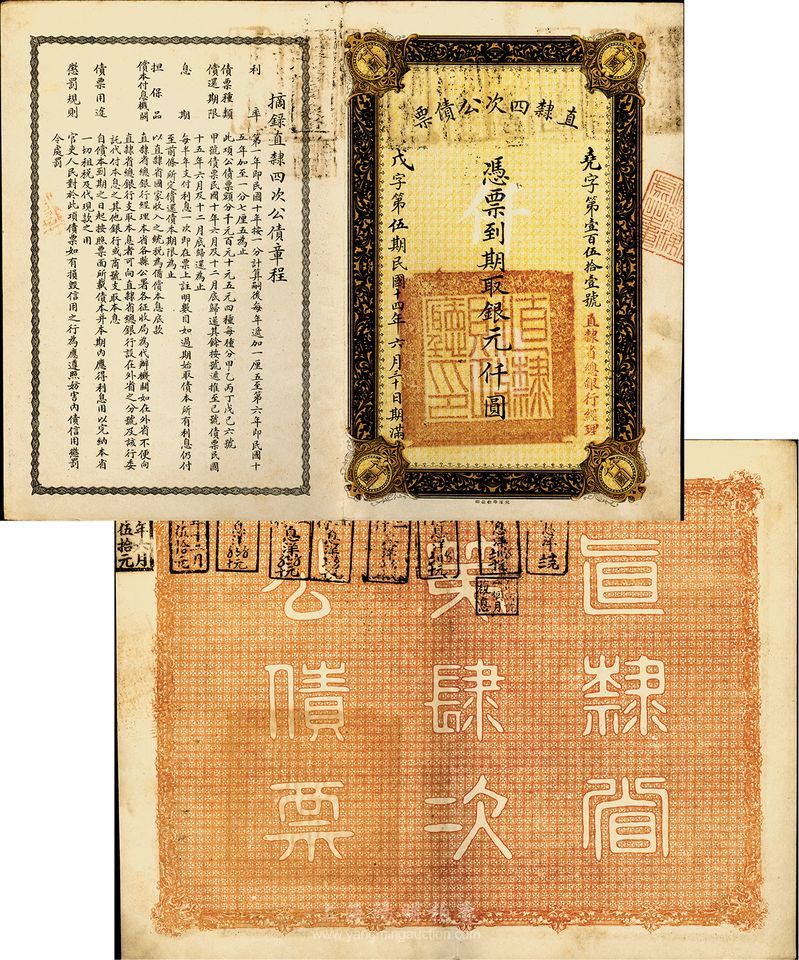 直隸四次公債票
堯字第壹百伍拾壹號 直隸省總銀行經理
憑票到期取銀元仟圓
戊字第伍期民國十四年六月三十日期滿
摘錄直隸四次公債章程
利率 第一年即民國十年按一分計算嗣後每年遞加一厘五至第六年即民國十
五年加至一分七厘五為止
債票種類 此項公債票額分千元百元十元五元四種每種分甲乙丙丁戊己六號
償還期限 甲號債票民國十年六月及十二月底歸還其餘按號遞推至己號債票民國
十五年六月及十二月底歸還為止
息期 每半年支付利息一次即在票上註明數目如過期始取債本所有利息仍付
至前條所定償還債本期限為止
担保品 以直隸省國家收入之統稅為備償本息底款
償本付息機關 直隸省總銀行經理本省各縣公署各征收局為代辦機關如在外省不便向
直隸省總銀行支取本息者可向直隸省總銀行設在外省之分號及該行委
託代付本息之其他銀行或商號支取本息
債票用途 自償本到期之日起按照票面所載債本并本期內應得利息用以完納本省
一切租稅及代現款之用
懲罰規則 官吏人民對於此項債票如有損毀信用之行為應遵照妨害內債信用懲罰
令處罰
直隸省
第肆次
公債票
www.yangmingauction.com